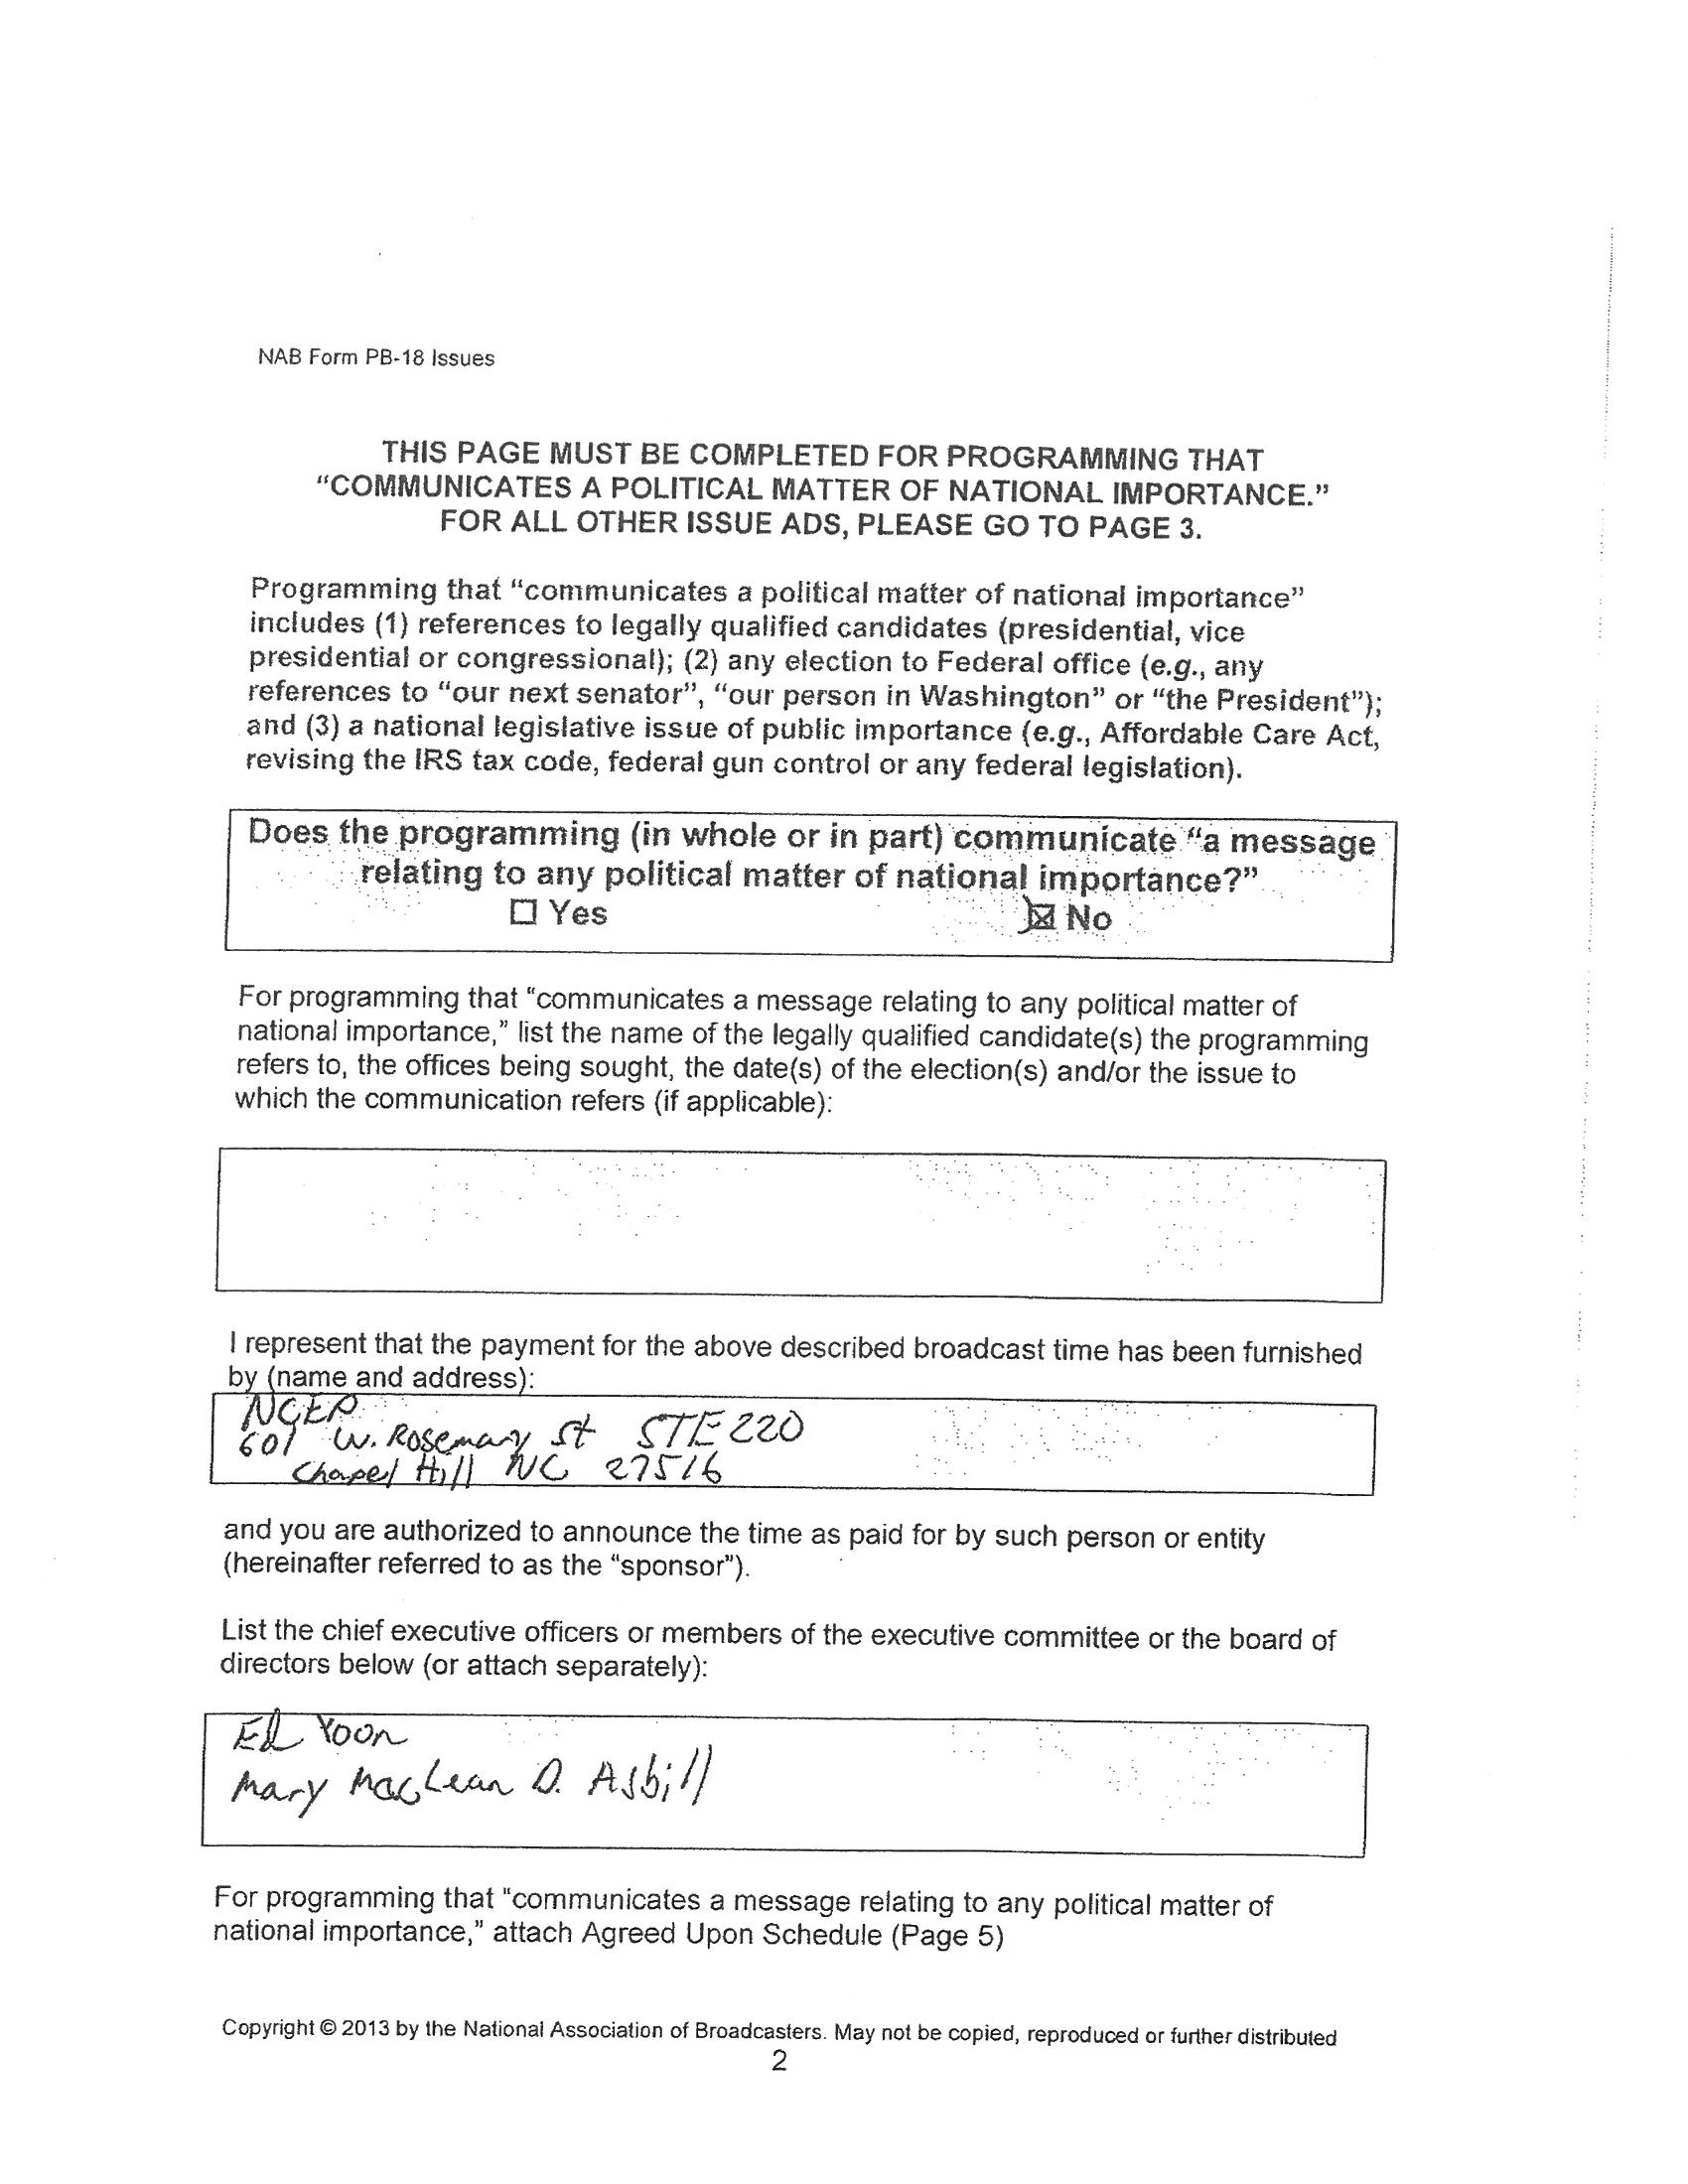 NAB Form PB-18 Issues
THIS PAGE MUST BE COMPLETED FOR PROGRAMMING THAT
“COMMUNICATES A POLITICAL MATTER OF NATIONAL IMPORTANCE.”
FOR ALL OTHER ISSUE ADS, PLEASE GO TO PAGE 3.
Programming that “communicates a political matter of national importance”
includes (1) references to legally qualified candidates (presidential, vice
presidential or congressional); (2) any election to Federal office (e.g., any
references to “our next senator”, “our person in Washington” or “the President”);
and (3) a national legislative issue of public importance (e.g., Affordable Care Act,
revising the IRS tax code, federal gun control or any federal legislation).
Does the programming (in whole or in part) communicate “a message
relating to any political matter of national importance?”
☐ Yes ☒ No
For programming that “communicates a message relating to any political matter of
national importance,” list the name of the legally qualified candidate(s) the programming
refers to, the offices being sought, the date(s) of the election(s) and/or the issue to
which the communication refers (if applicable):
I represent that the payment for the above described broadcast time has been furnished
by (name and address):
NCEP
601 W. Rosemary St STE 220
Chapel Hill NC 27516
and you are authorized to announce the time as paid for by such person or entity
(hereinafter referred to as the “sponsor”).
List the chief executive officers or members of the executive committee or the board of
directors below (or attach separately):
Ed Yoon
Mary MacLean D. Asbill
For programming that "communicates a message relating to any political matter of
national importance,” attach Agreed Upon Schedule (Page 5)
Copyright © 2013 by the National Association of Broadcasters. May not be copied, reproduced or further distributed
2